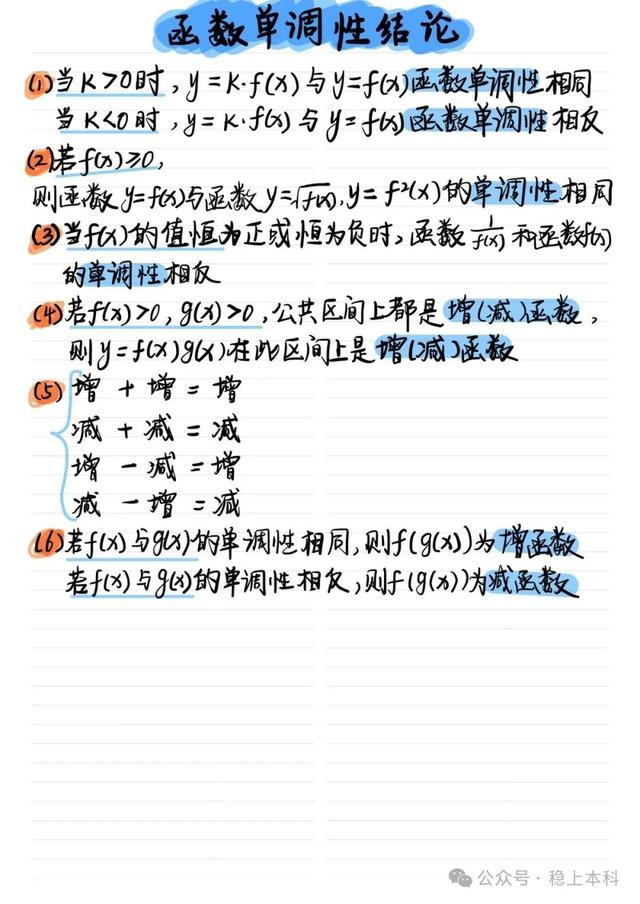 函数单调性结论
(1)当K>0时,y=K·f(x)与y=f(x)函数单调性相同
当K<0时,y=K·f(x)与y=f(x)函数单调性相反
(2)若f(x)≥0,
则函数y=f(x)与函数y=√f(x),y=f²(x)的单调性相同
(3)当f(x)的值恒为正或恒为负时,函数1/f(x)和函数f(x)
的单调性相反
(4)若f(x)>0,g(x)>0,公共区间上都是增(减)函数,
则y=f(x)g(x)在此区间上是增(减)函数
(5)增+增=增
减+减=减
增-减=增
减-增=减
(6)若f(x)与g(x)的单调性相同,则f(g(x))为增函数
若f(x)与g(x)的单调性相反,则f(g(x))为减函数
公众号·稳上本科